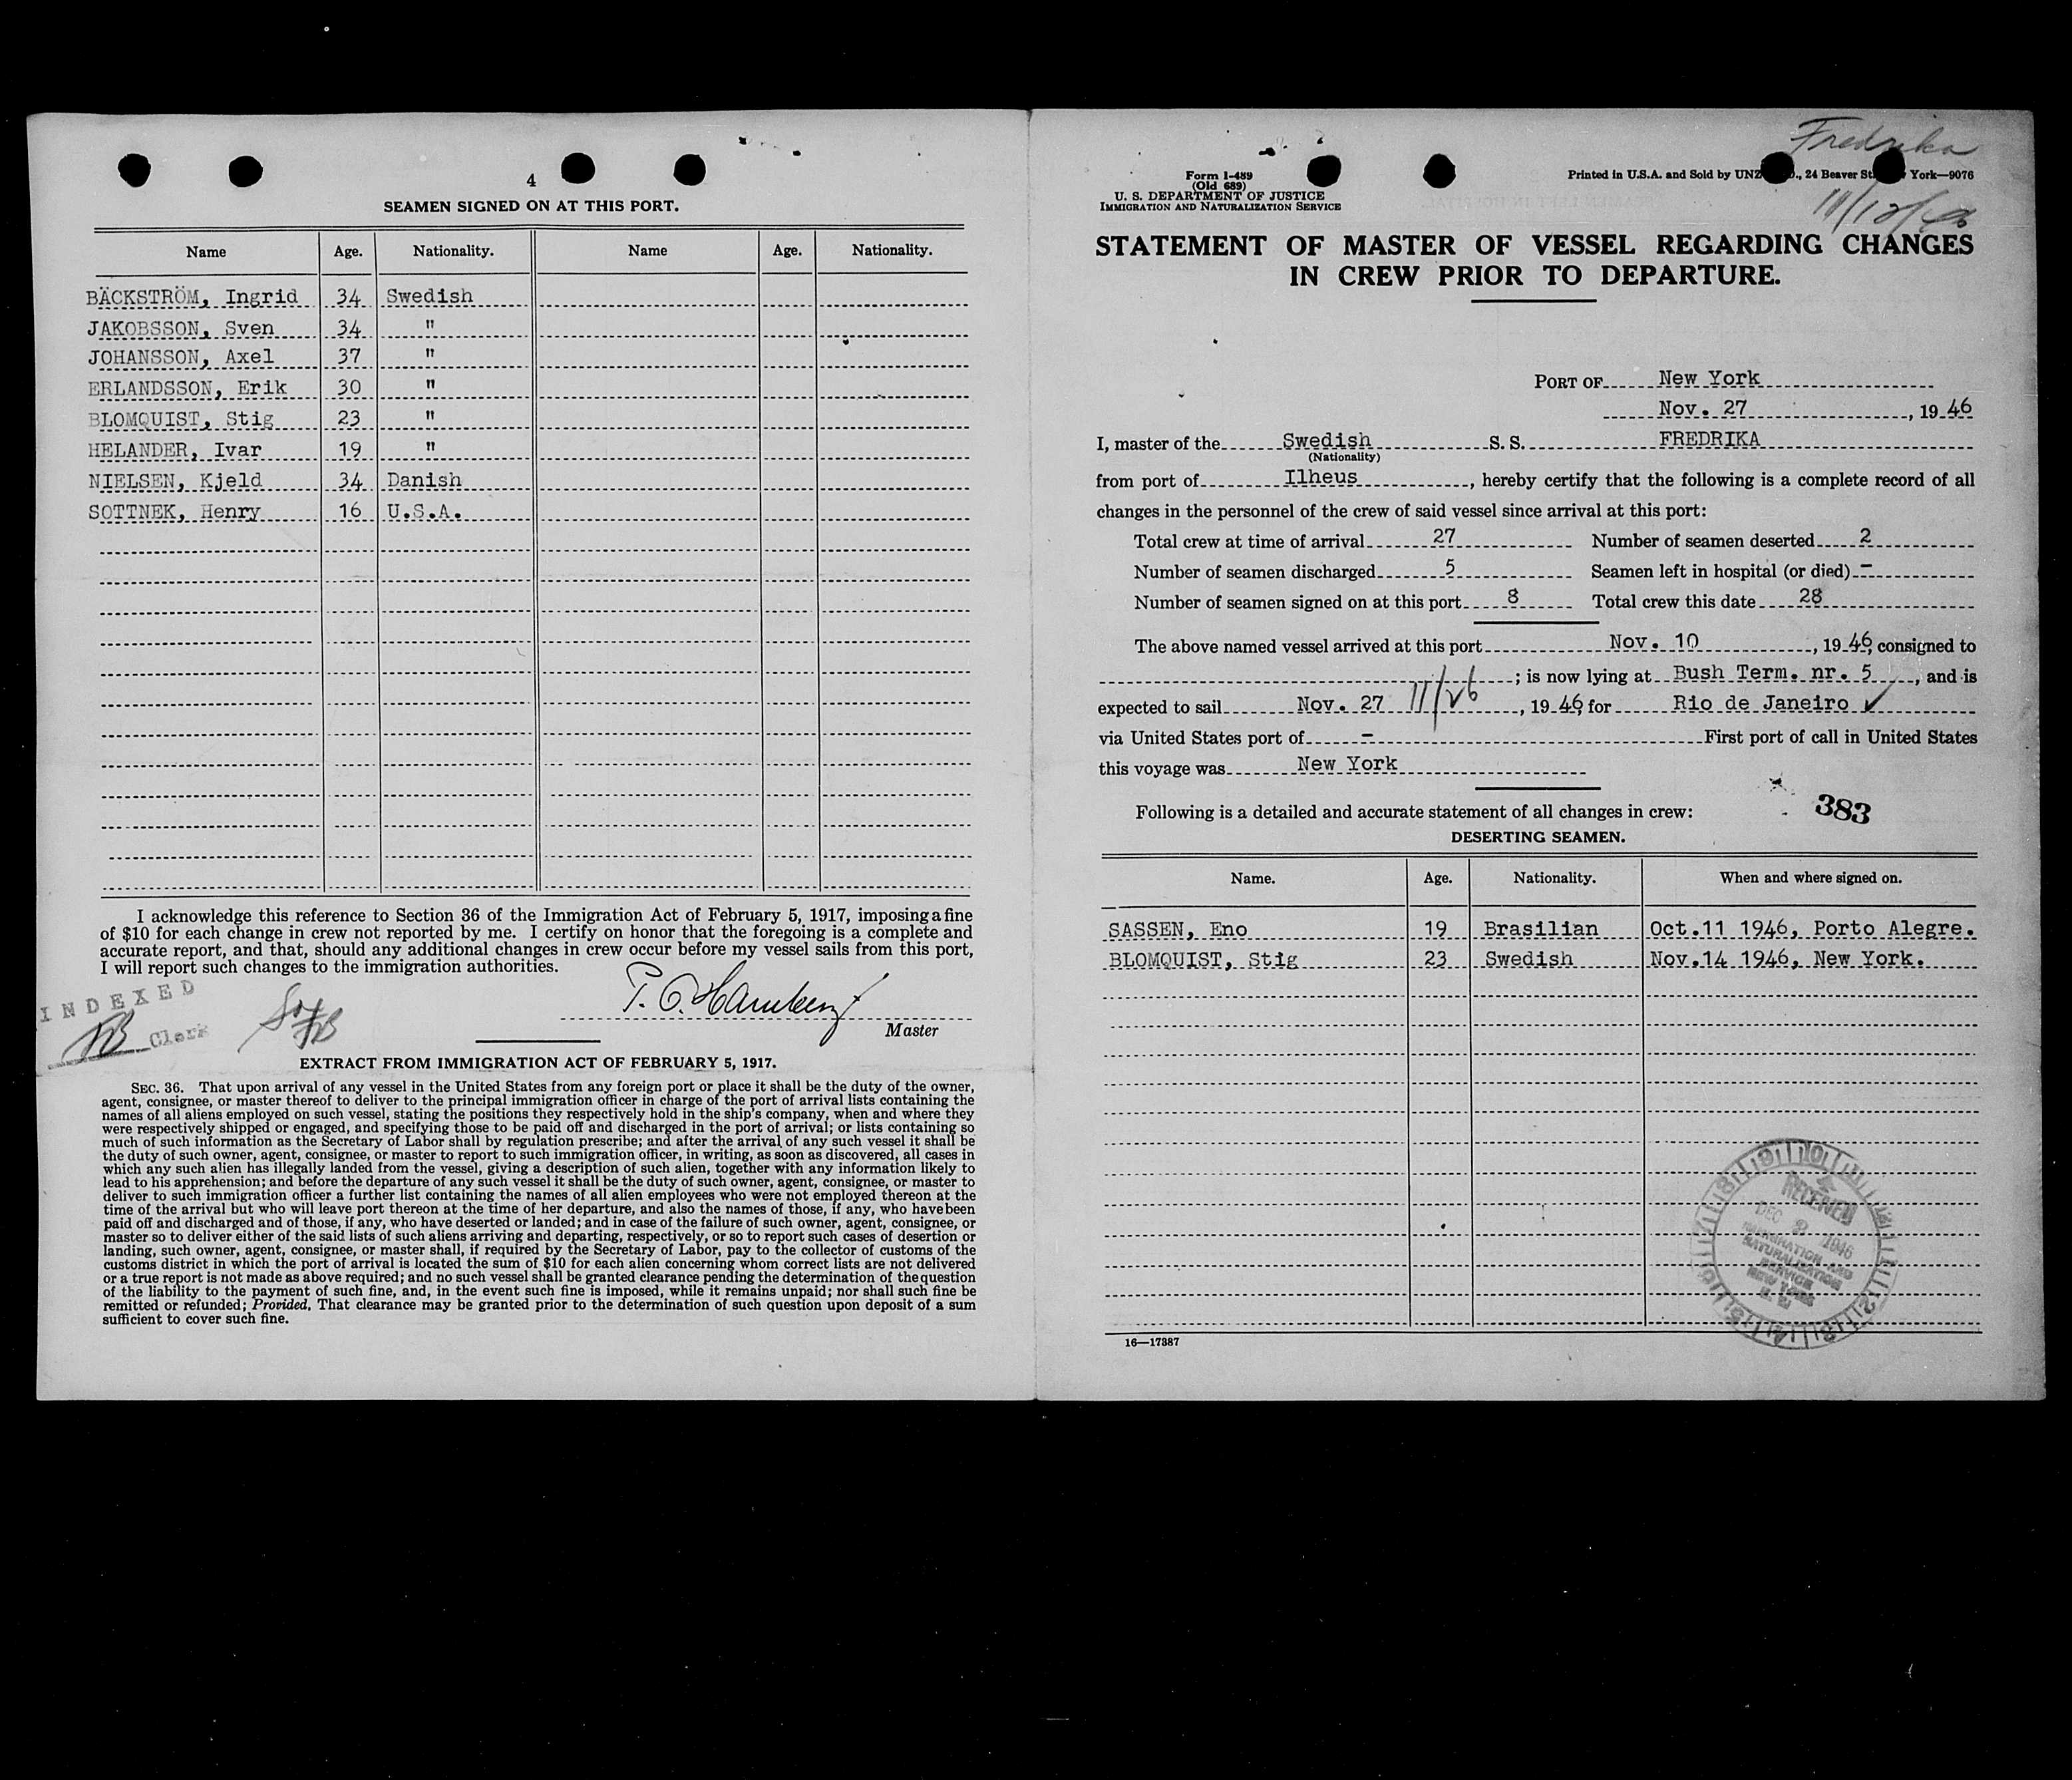 4
SEAMEN SIGNED ON AT THIS PORT.
Name Age. Nationality. Name Age. Nationality.
BÄCKSTRÖM, Ingrid 34 Swedish
JAKOBSSON, Sven 34 "
JOHANSSON, Axel 37 "
ERLANDSSON, Erik 30 "
BLOMQUIST, Stig 23 "
HELANDER, Ivar 19 "
NIELSEN, Kjeld 34 Danish
SOTTNEK, Henry 16 U.S.A.
I acknowledge this reference to Section 36 of the Immigration Act of February 5, 1917, imposing a fine
of $10 for each change in crew not reported by me. I certify on honor that the foregoing is a complete and
accurate report, and that, should any additional changes in crew occur before my vessel sails from this port,
I will report such changes to the immigration authorities.
INDEXED
Clerk
Master
EXTRACT FROM IMMIGRATION ACT OF FEBRUARY 5, 1917.
SEC. 36. That upon arrival of any vessel in the United States from any foreign port or place it shall be the duty of the owner,
agent, consignee, or master thereof to deliver to the principal immigration officer in charge of the port of arrival lists containing the
names of all aliens employed on such vessel, stating the positions they respectively hold in the ship's company, when and where they
were respectively shipped or engaged, and specifying those to be paid off and discharged in the port of arrival; or lists containing so
much of such information as the Secretary of Labor shall by regulation prescribe; and after the arrival of any such vessel it shall be
the duty of such owner, agent, consignee, or master to report to such immigration officer, in writing, as soon as discovered, all cases in
which any such alien has illegally landed from the vessel, giving a description of such alien, together with any information likely to
lead to his apprehension; and before the departure of any such vessel it shall be the duty of such owner, agent, consignee, or master to
deliver to such immigration officer a further list containing the names of all alien employees who were not employed thereon at the
time of the arrival but who will leave port thereon at the time of her departure, and also the names of those, if any, who have been
paid off and discharged and of those, if any, who have deserted or landed; and in case of the failure of such owner, agent, consignee, or
master so to deliver either of the said lists of such aliens arriving and departing, respectively, or so to report such cases of desertion or
landing, such owner, agent, consignee, or master shall, if required by the Secretary of Labor, pay to the collector of customs of the
customs district in which the port of arrival is located the sum of $10 for each alien concerning whom correct lists are not delivered
or a true report is not made as above required; and no such vessel shall be granted clearance pending the determination of the question
of the liability to the payment of such fine, and, in the event such fine is imposed, while it remains unpaid; nor shall such fine be
remitted or refunded; Provided, That clearance may be granted prior to the determination of such question upon deposit of a sum
sufficient to cover such fine.
Fredrika
11/12/46
Form I-489
(Old 689)
U. S. DEPARTMENT OF JUSTICE
IMMIGRATION AND NATURALIZATION SERVICE
Printed in U.S.A. and Sold by UNZ ., 24 Beaver St. York—9076
STATEMENT OF MASTER OF VESSEL REGARDING CHANGES
IN CREW PRIOR TO DEPARTURE.
PORT OF New York
Nov. 27, 19 46
I, master of the Swedish S. S. FREDRIKA
(Nationality)
from port of Ilheus, hereby certify that the following is a complete record of all
changes in the personnel of the crew of said vessel since arrival at this port:
Total crew at time of arrival 27 Number of seamen deserted 2
Number of seamen discharged 5 Seamen left in hospital (or died) -
Number of seamen signed on at this port 8 Total crew this date 28
The above named vessel arrived at this port Nov. 10, 19 46, consigned to
; is now lying at Bush Term. nr. 5, and is
expected to sail Nov. 27 11/26, 19 46, for Rio de Janeiro ✓
via United States port of - First port of call in United States
this voyage was New York
Following is a detailed and accurate statement of all changes in crew:
383
DESERTING SEAMEN.
Name. Age. Nationality. When and where signed on.
SASSEN, Eno 19 Brasilian Oct.11 1946, Porto Alegre.
BLOMQUIST, Stig 23 Swedish Nov.14 1946, New York.
RECEIVED
DEC 2 1946
IMMIGRATION AND
NATURALIZATION
SERVICE
NEW YORK
16—17387